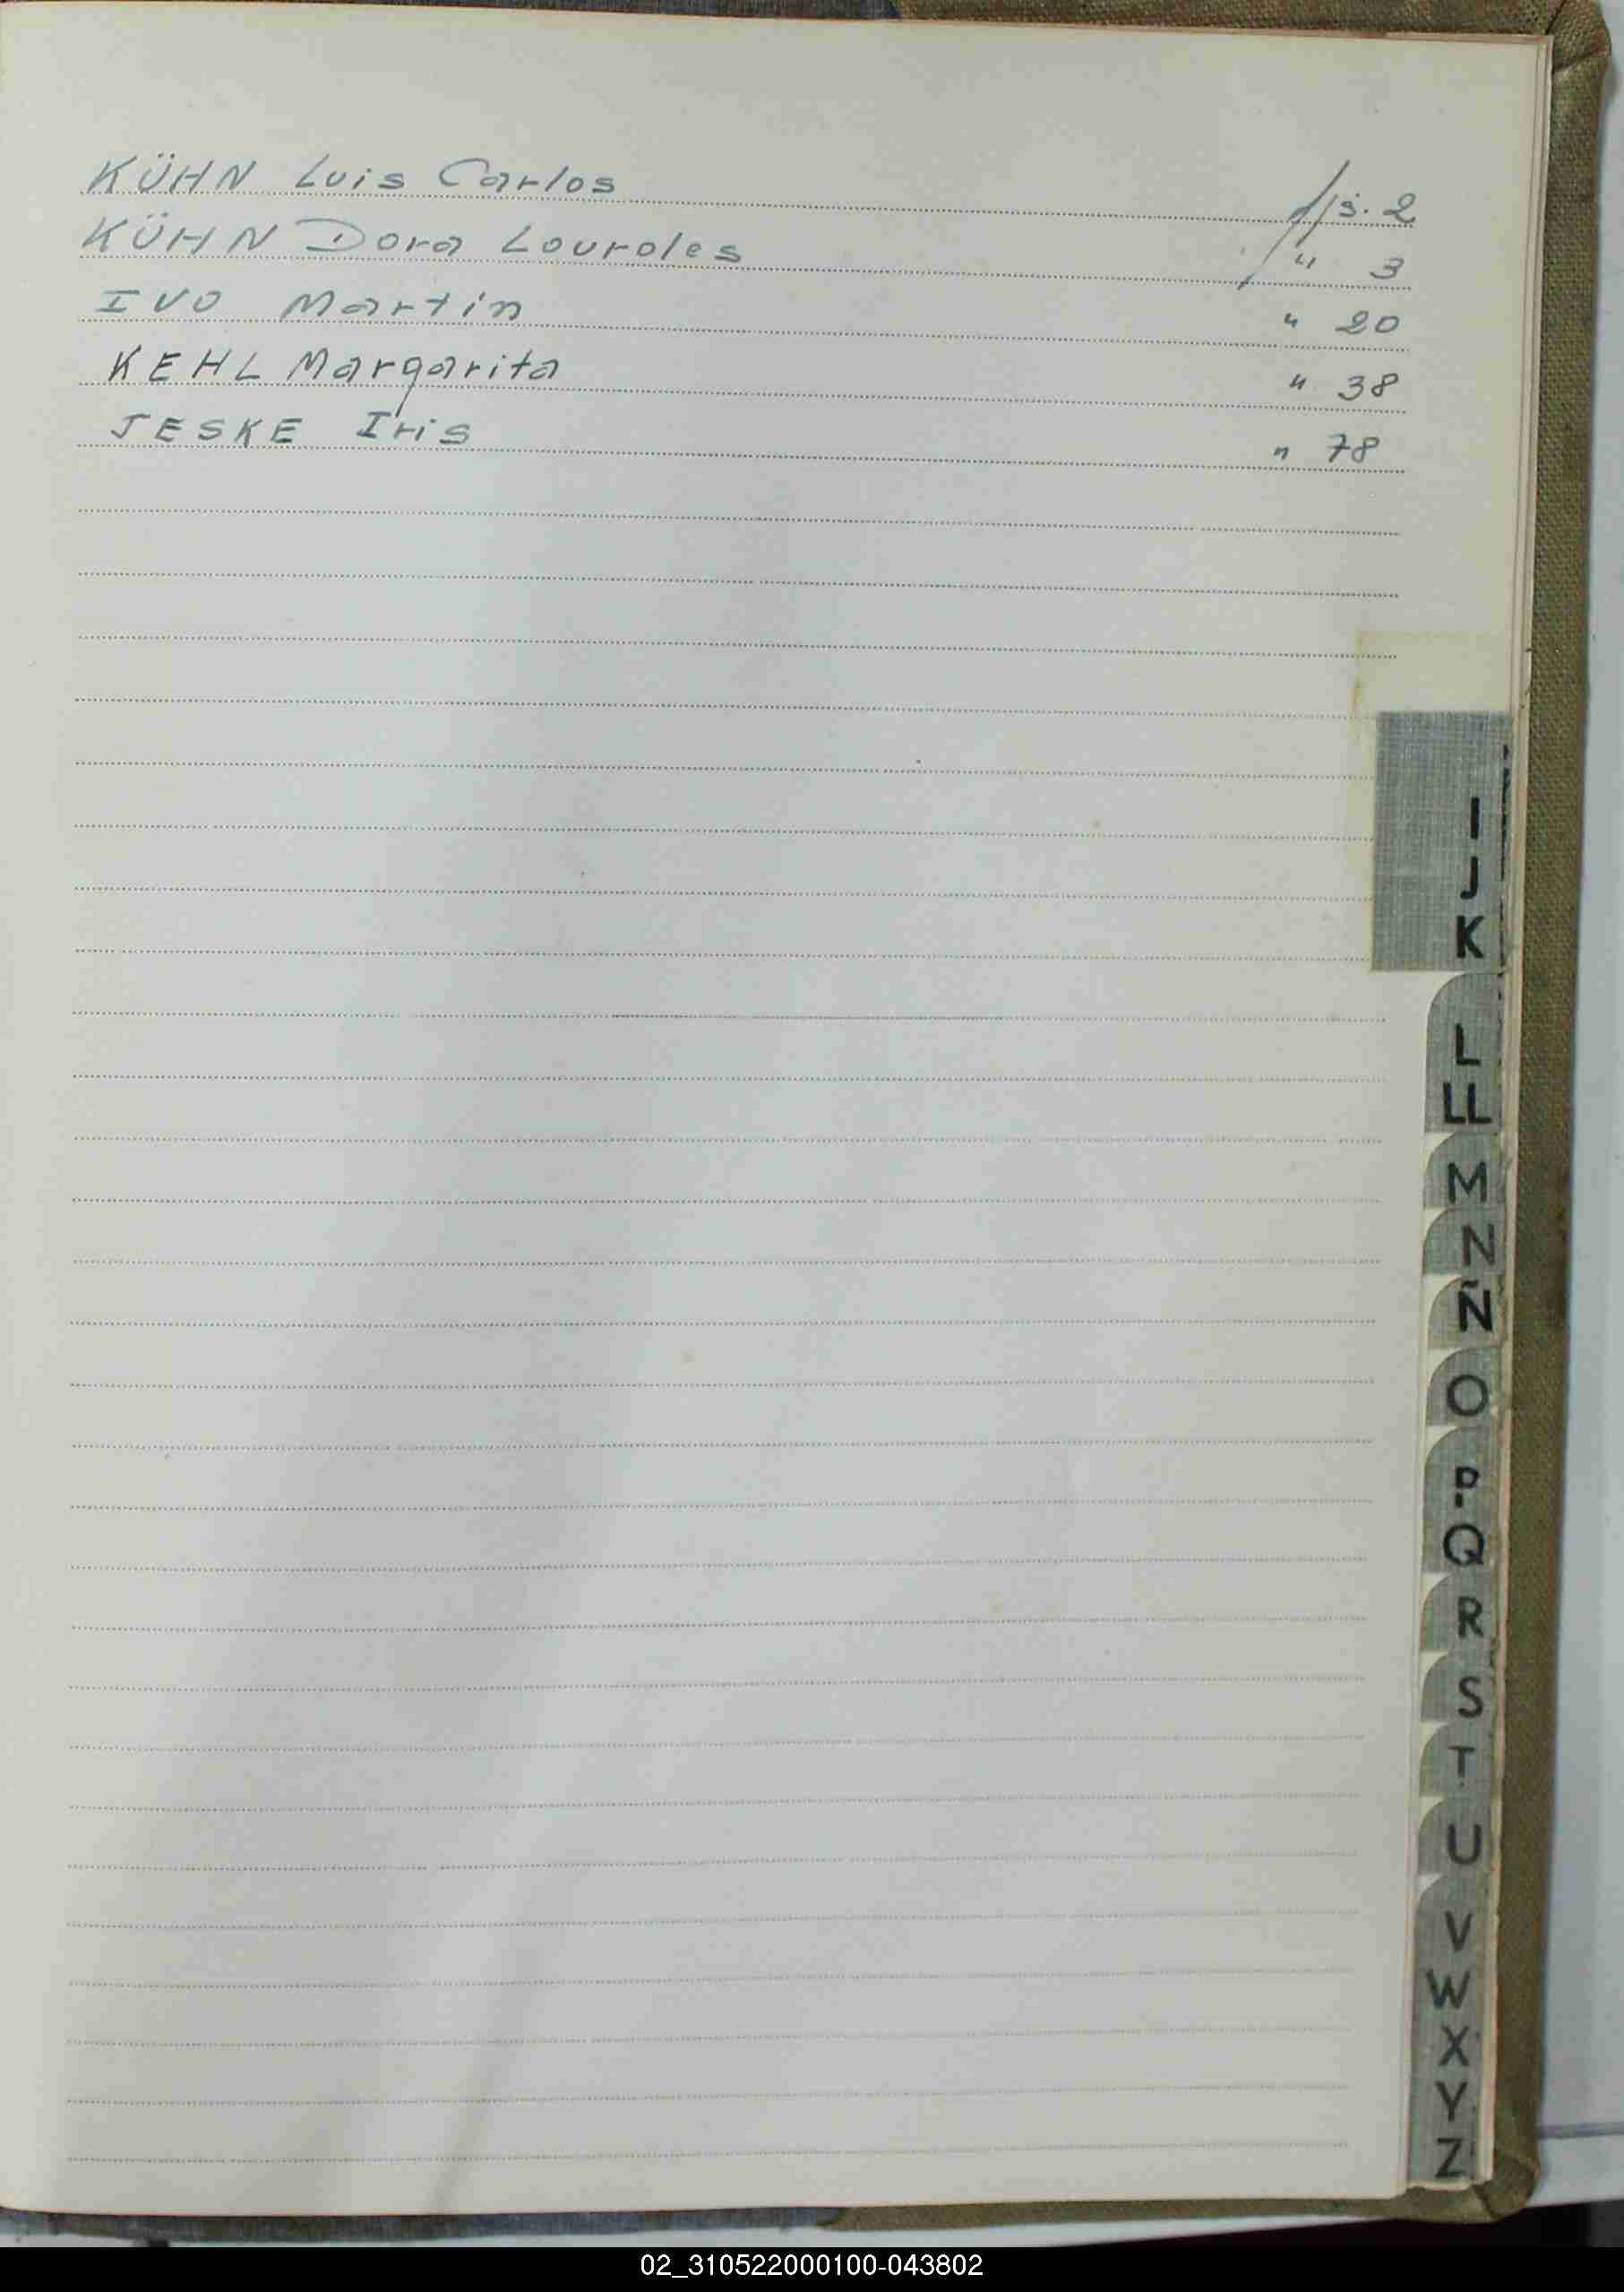 KÜHN Luis Carlos fjs. 2
KÜHN Dora Lourdes " 3
IVO Martin " 20
KEHL Margarita " 38
JESKE Iris " 78
I
J
K
L
LL
M
N
Ñ
O
P
Q
R
S
T
U
V
W
X
Y
Z
02_310522000100-043802